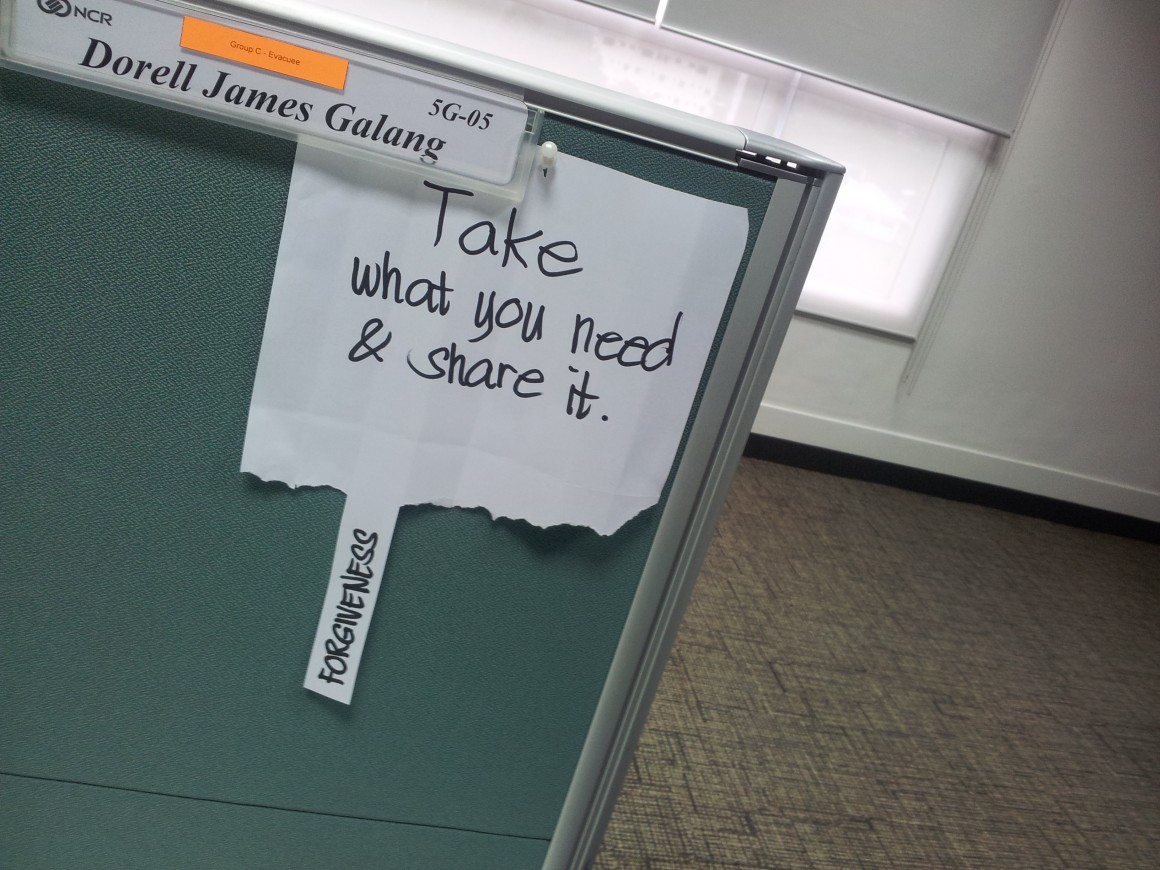 NCR
Group C - Evacuee
Dorell James Galang
5G-05
Take
what you need
& share it.
FORGIVENESS